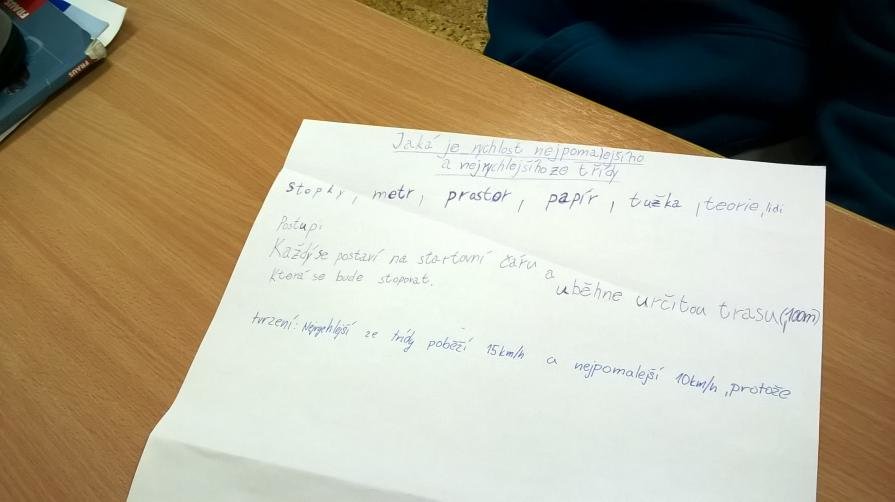 FRAUS
FRAUS
Jaká je rychlost nejpomalejšího
a nejrychlejšího ze třídy
stopky, metr, prostor, papír, tužka, teorie, lidi
Postup:
Každý se postaví na startovní čáru a uběhne určitou trasu (100m)
která se bude stopovat.
tvrzení: Nejrychlejší ze třídy poběží 15km/h a nejpomalejší 10km/h, protože